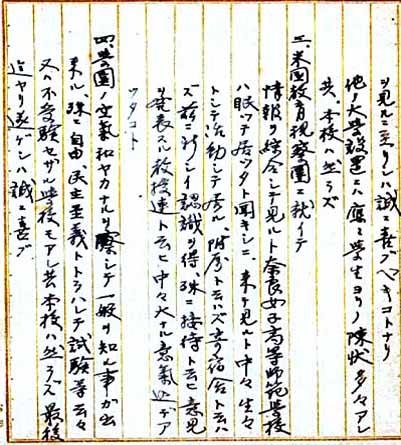 ヲ見ルニ至リシハ誠ニ喜ブベキコトナリ
他ノ大學設置ニハ屢々學生ヨリノ陳状多々アレ
共、本校ハ然ラズ
三、米国教育視察團ニ就イテ
情報ヲ綜合シテ見ルト奈良女子高等師範學校
ハ眠ッテ居ッタト聞キシニ、来テ見ルト中々生々
トシテ活動シテ居ル、附属ト云ハズ寄宿舎ト云ハ
ズ、前ニ新シイ認識ヲ得、殊ニ接待ト云ヒ意見
ヲ発表スル教授連ト云ヒ中々大ナル意氣込デア
ッタコト
四、學園ノ空氣和ヤカナルヲ察シテ一般ヲ知ル事ガ出
来ル、殊ニ自由、民主主義ニトラハレテ試験等云々
又ハ不受験セザル學校モアレ共本校ハ然ラズ最後
迄ヤリ遂ゲシハ誠ニ喜ブ